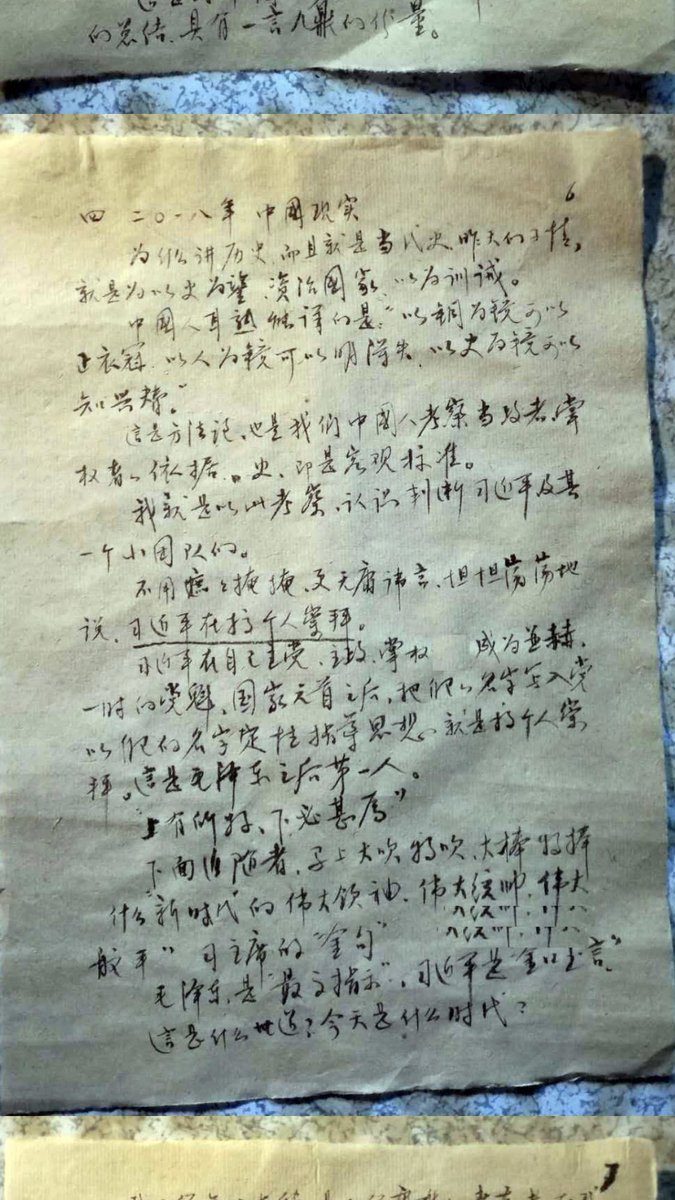 的总结、具有一言九鼎的份量。
6
四 二〇一八年 中國现实
为什么讲历史,而且就是当代史,昨天的事情,
就是为以史为鑒、资治國家、以为训诫。
中國人耳熟能详的是:“以铜为镜可以
正衣冠,以人为镜可以明得失,以史为镜可以
知兴替。”
这是方法论,也是我们中國人考察当政者、掌
权者的依据。史,即是客观标准。
我就是以此考察、认识判断习近平及其
一个小团队的。
不用遮遮掩掩,更无庸讳言,坦坦荡荡地
说,习近平在搞个人崇拜。
习近平在自己主党、主政、掌权 成为显赫
一时的党魁、國家元首之后,把他的名字写入党
以他的名字定性指导思想,就是搞个人崇
拜。這是毛泽东之后第一人。
“上有所好、下必甚焉”
下面追随者,马上大吹特吹、大捧特捧
什么“新时代”的伟大领袖、伟大统帅、伟大
舵手” 习主席的“金句”
毛泽东是“最高指示”,习近平是“金口玉言”
這是什么世道?今天是什么时代?
7